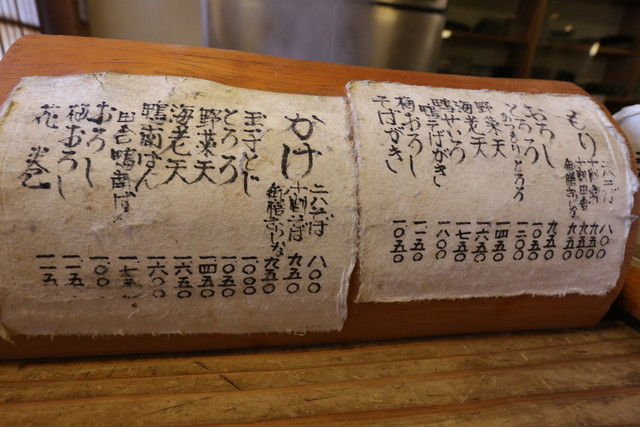 もり
二八そば 八〇〇
十割そば 九五〇
十割田舎 九五〇
九五〇
おろし 九五〇
とろろ 一〇五〇
とろろ 一二〇〇
野菜天 一四五〇
海老天 一六五〇
鴨せいろ 一七五〇
鴨そばがき 一八〇〇
梅おろし 一一五〇
そばがき 一〇五〇
かけ
二八そば 八〇〇
十割そば 九五〇
九五〇
玉子とじ 一〇〇〇
とろろ 一〇五〇
野菜天 一四五〇
海老天 一六五〇
鴨南ばん 一六〇〇
田舎鴨南ばん 一七五
おろし 一〇〇
梅おろし 一一五
花巻 一一五